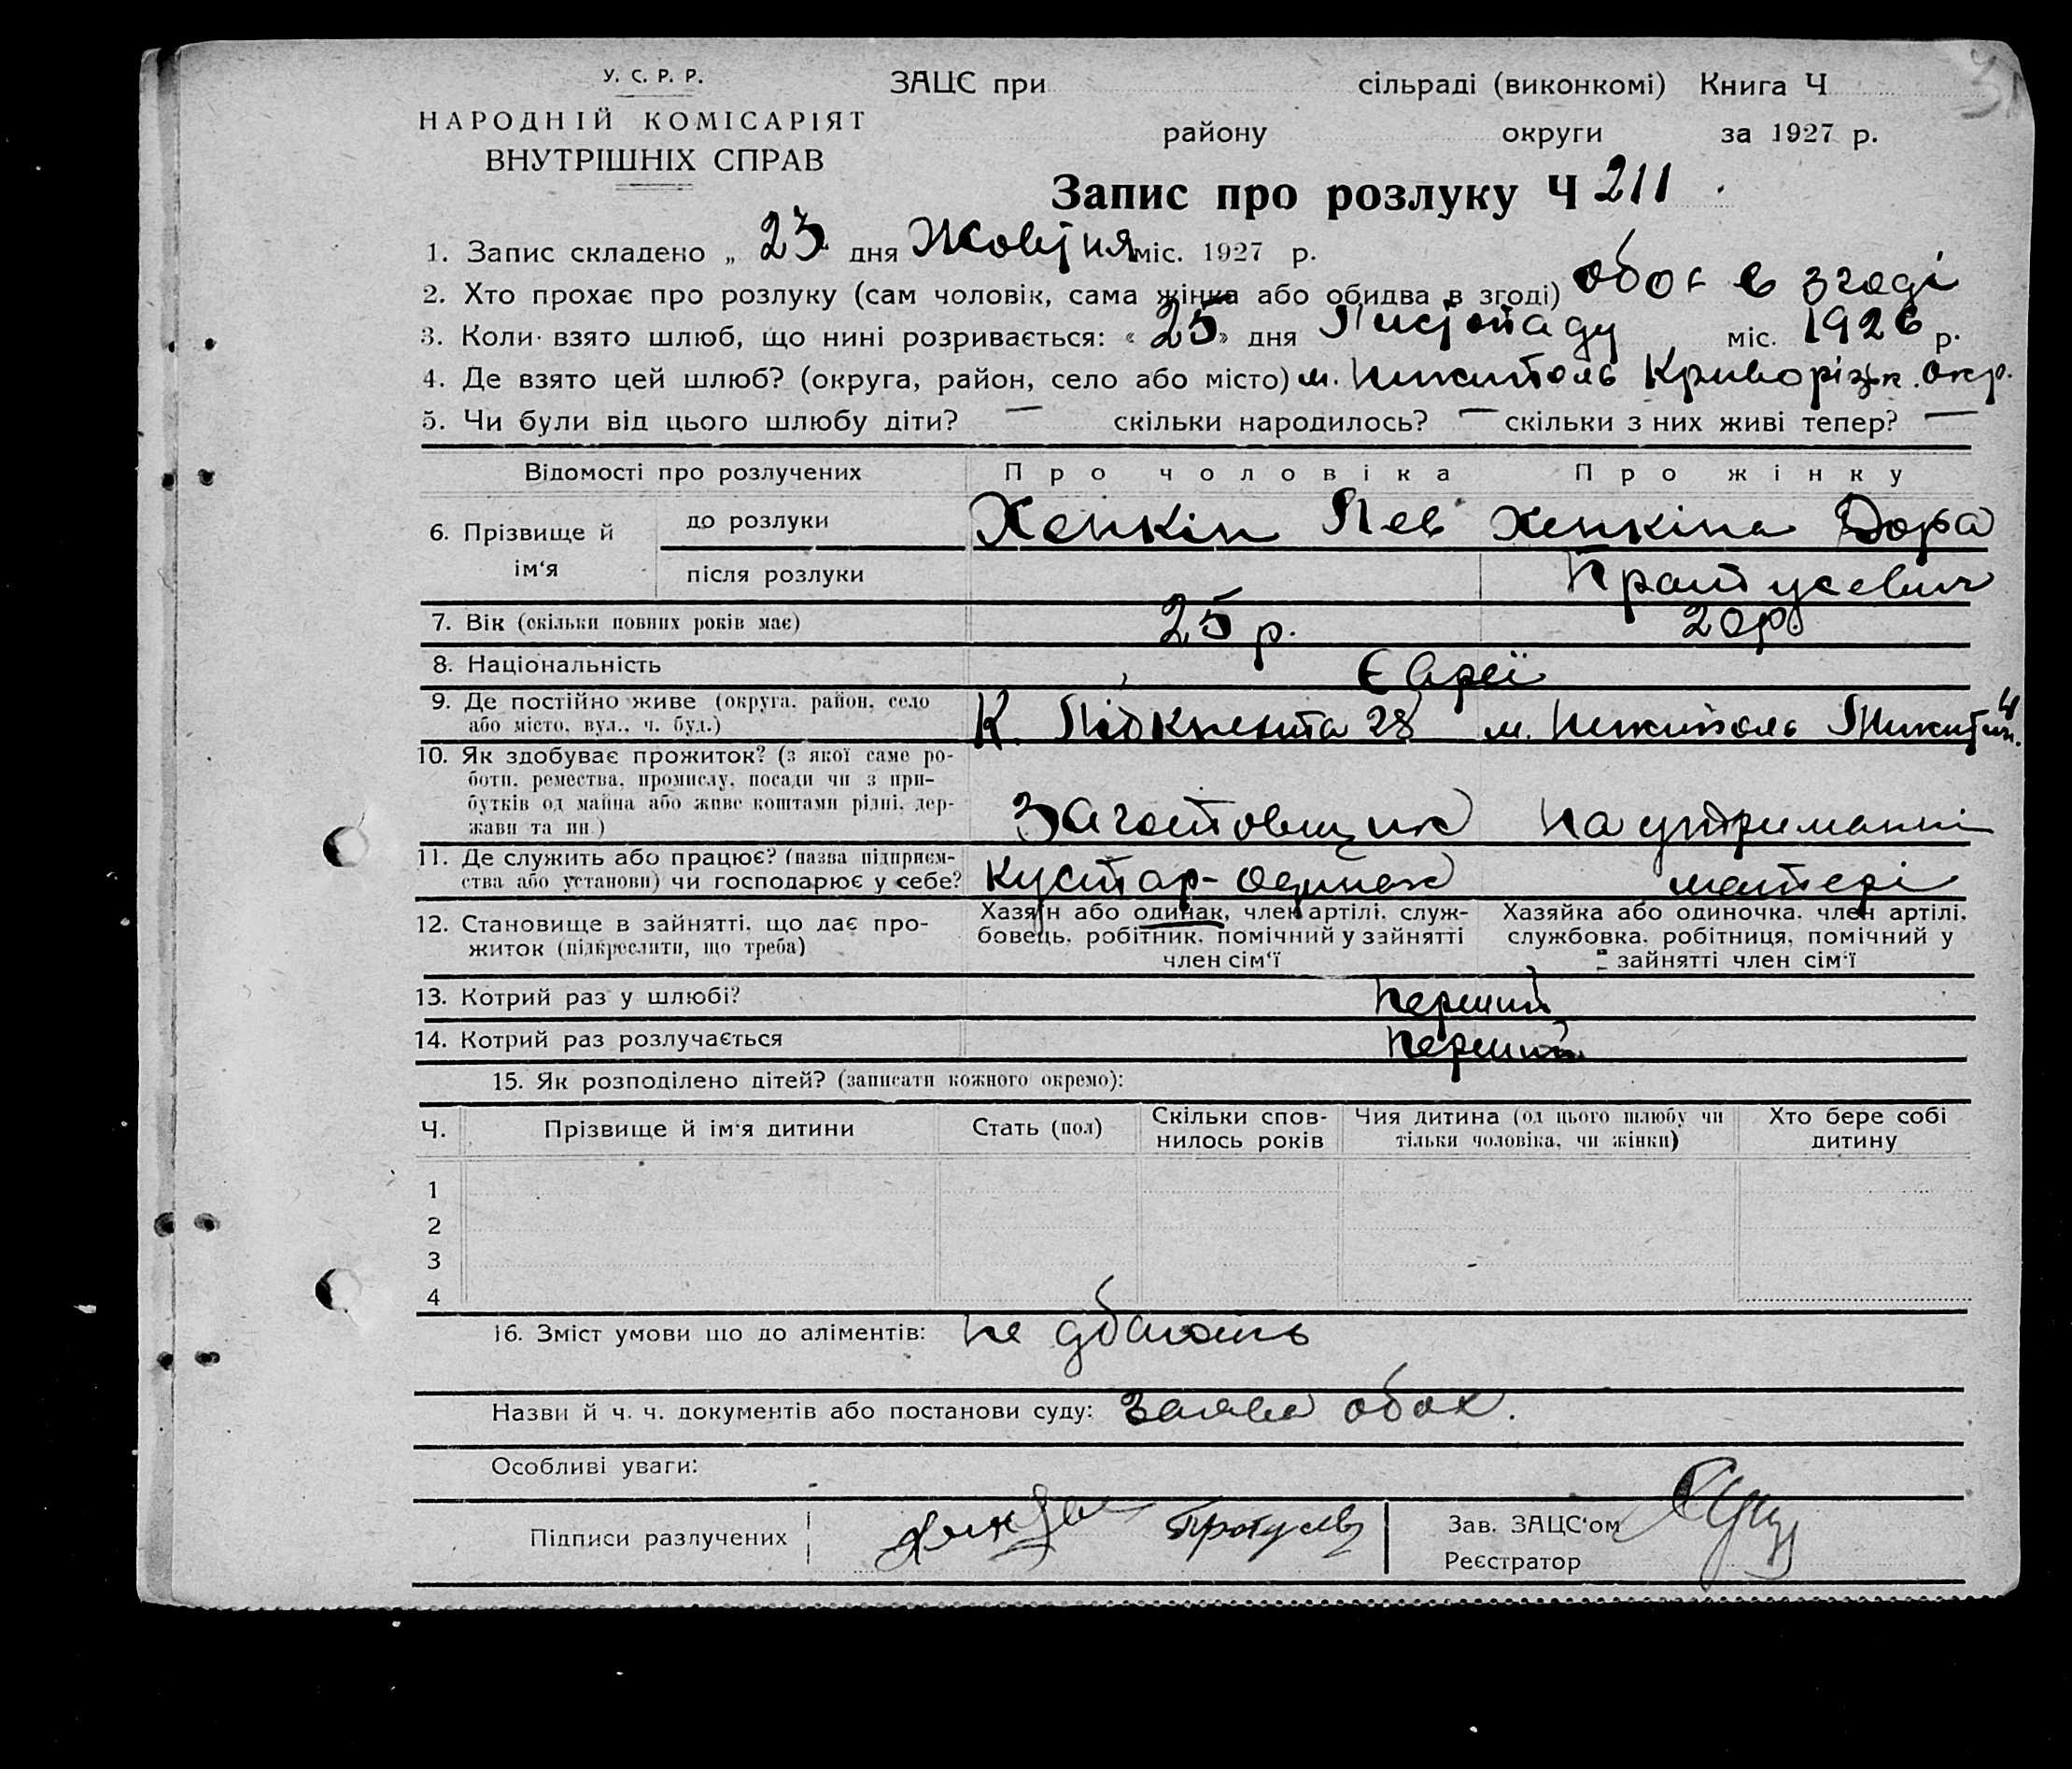 У. С. Р. Р.
НАРОДНІЙ КОМІСАРІЯТ
ВНУТРІШНІХ СПРАВ
ЗАЦС при сільраді (виконкомі) Книга Ч
району округи за 1927 р.
Запис про розлуку Ч 211
1. Запис складено „ 23 дня Жовтня міс. 1927 р.
2. Хто прохає про розлуку (сам чоловік, сама жінка або обидва в згоді) обоє в згоді
3. Коли взято шлюб, що нині розривається: « 25 » дня Листопаду міс. 1926 р.
4. Де взято цей шлюб? (округа, район, село або місто) м. Никитполь Криворізьк. Окр.
5. Чи були від цього шлюбу діти? — скільки народилось? — скільки з них живі тепер? —
Відомості про розлучених Про чоловіка Про жінку
6. Прізвище й ім'я до розлуки Хенкін Лев Хенкіна Дора
після розлуки
7. Вік (скільки повних років має) 25 р. 20 р.
8. Національність Євреї
9. Де постійно живе (округа, район, село
або місто, вул., ч. буд.) К. 28 м. Никитполь
10. Як здобуває прожиток? (з якої саме ро-
боти, ремества, промислу, посади чи з при-
бутків од майна або живе коштами рідні, дер-
жави та ин.) Заготовщик На утриманні
11. Де служить або працює? (назва підприєм-
ства або установи) чи господарює у себе? Кустар-одинак матері
12. Становище в зайнятті, що дає про-
житок (підкреслити, що треба)
Хазяїн або одинак, член артілі, служ-
бовець, робітник, помічний у зайнятті
член сім'ї
Хазяйка або одиночка, член артілі,
службовка, робітниця, помічний у
зайнятті член сім'ї
13. Котрий раз у шлюбі? Перший
14. Котрий раз розлучається Перший
15. Як розподілено дітей? (записати кожного окремо):
Ч. Прізвище й ім'я дитини Стать (пол) Скільки спов-
нилось років Чия дитина (од цього шлюбу чи
тільки чоловіка, чи жінки) Хто бере собі
дитину
1
2
3
4
16. Зміст умови що до аліментів: Не дбають
Назви й ч. ч. документів або постанови суду: Заява обох.
Особливі уваги:
Підписи разлучених
Зав. ЗАЦС'ом
Реєстратор